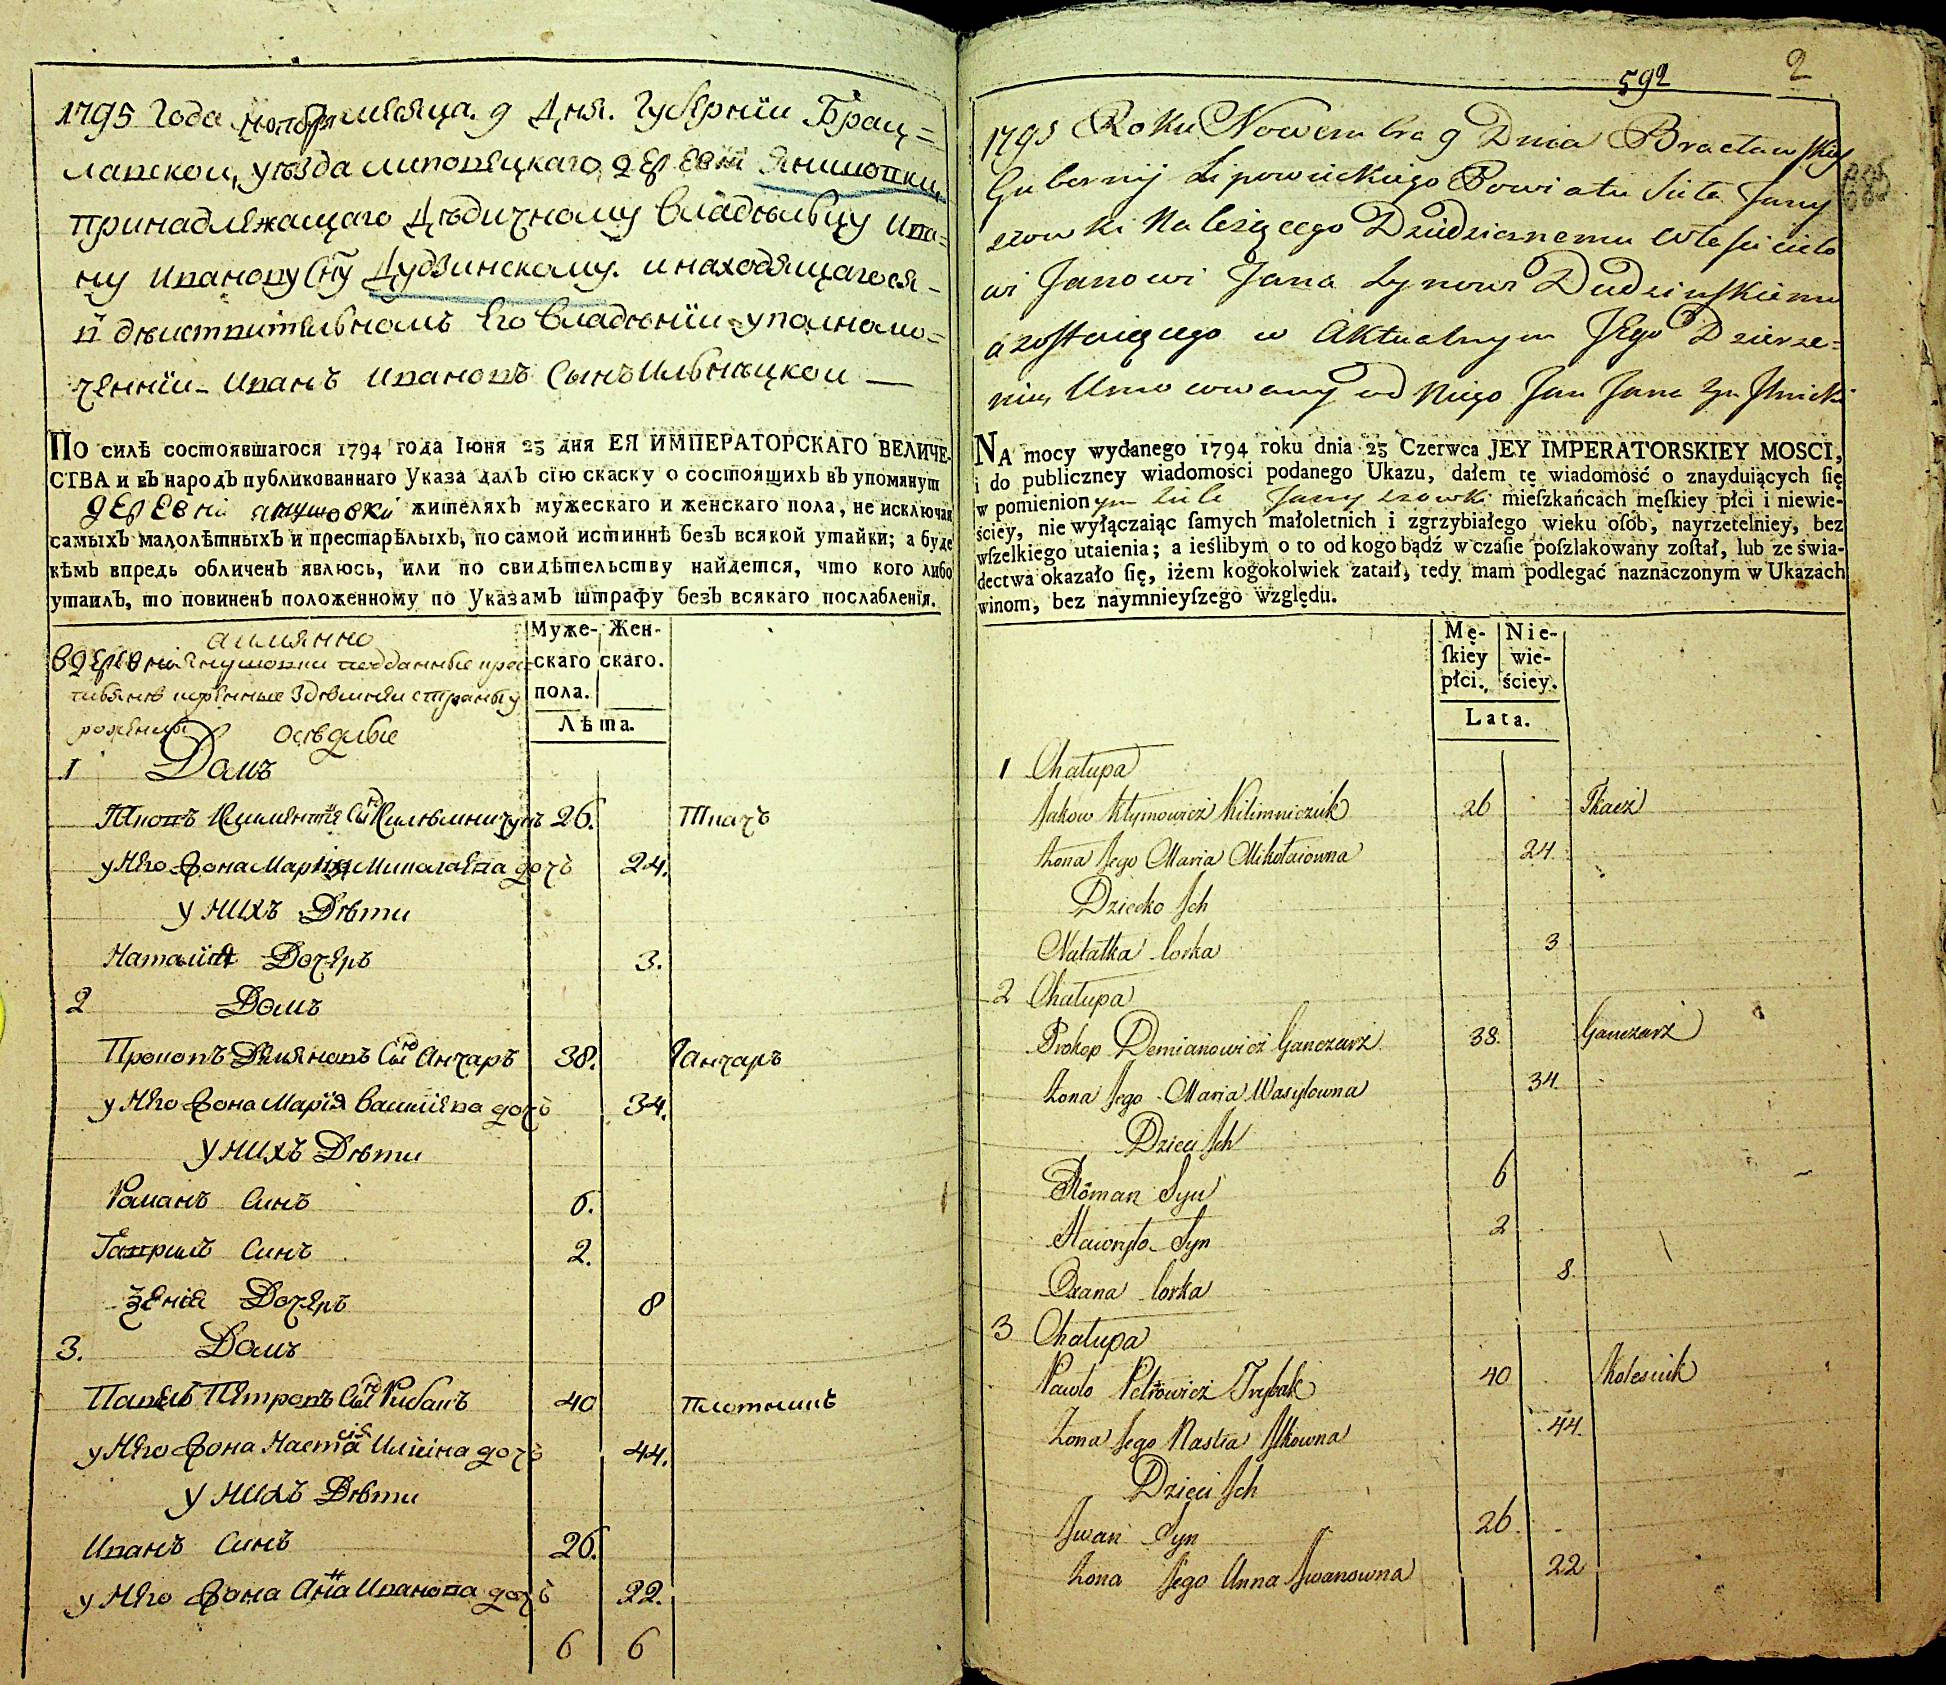 1795 года ноября месяца 9 дня. Губерніи Брац=
лавской, уѣзда липовецкаго деревни Янишовки,
принадлежащаго дѣдичному владѣльцу Ива=
ну Иванову Сну Дудзинскому. и находящагося
в дѣиствительномъ Его владѣніи уполномо=
ченній Иванъ Ивановъ Сынъ Ильницкои
По силѣ состоявшагося 1794 года Іюня 23 дня ЕЯ ИМПЕРАТОРСКАГО ВЕЛИЧЕ-
СТВА и въ народъ публикованнаго Указа далъ сію скаску о состоящихъ въ упомянут
деревни жителяхъ мужескаго и женскаго пола, не исключая
самыхъ малолѣтныхъ и престарѣлыхъ, по самой истиннѣ безъ всякой утайки; а буде
кѣмъ впредь обличенъ явлюсь, или по свидѣтельству найдется, что кого либо
утаилъ, то повиненъ положенному по Указамъ штрафу безъ всякаго послабленія.
а имянно
в деревни Янушовки подданные
Осѣдлые
Муже-
скаго
пола.
Жен-
скаго.
Лѣта.
1 Домъ
Яковъ Климентіѣ Снъ Килѣмничукъ 26. Ткачъ
у Него Жона Мария Миколаева дочъ 24.
у нихъ Дѣти
Наталия Дочеръ 3.
2 Домъ
Прокопъ Демяновъ Снъ Ганчаръ 38. Ганчаръ
у Него Жона Марія Василева дочъ 34.
у нихъ Дѣти
Романъ Синъ 6.
Гаврилъ Синъ 2.
Дочеръ 8
3. Домъ
Павелъ Петровъ Снъ Рибакъ 40 Плотникъ
у Него Жона Настасія Илкина дочъ 44.
у нихъ Дѣти
Иванъ Синъ 26.
у Него Жона Анна Иванова дочъ 22.
6 6
592
2
1795 Roku Nowembra 9 Dnia Bracławskiey
Gubernij Lipowieckiego Powiatu Sieła Jany
szowki Należącego Dziedzicznemu Właścicielo
wi Janowi Jana Synowi Dudzinſkiemu
a zoſtaiącego w Aktualnym Jego Dzierże=
niu, Umocowany od Niego Jan Jana Syn Jlnicki
NA mocy wydanego 1794 roku dnia 23 Czerwca JEY IMPERATORSKIEY MOSCI,
i do publiczney wiadomości podanego Ukazu, dałem tę wiadomość o znayduiących ſię
w pomienionym siele Janyszowki mieſzkańcach męſkiey płci i niewie-
ściey, nie wyłączaiąc ſamych małoletnich i zgrzybiałego wieku oſob, nayrzetelniey, bez
wſzelkiego utaienia; a ieślibym o to od kogo bądź w czaſie poſzlakowany zoſtał, lub ze świa-
dectwa okazało ſię, iżem kogokolwiek zataił, tedy mam podlegać naznaczonym w Ukazach
winom, bez naymnieyſzego względu.
Mę-
ſkiey
płci.
Nie-
wie-
ściey.
Lata.
1 Chałupa
Jakow Klymowicz Kilimniczuk 26 Tkacz
Żona Jego Maria Mikołaiowna 24
Dziecko Jch
Natałka Corka 3
2 Chałupa
Prokop Demianowicz Ganczarz 38. Ganczarz
Żona Jego Maria Wasylowna 34
Dzieci Jch
Roman Syn 6
Hawryło Syn 2
Oxana Corka 8.
3 Chałupa
Pawło Petrowicz Rybak 40 Kolesnik
Żona Jego Nastia Jlkowna 44.
Dzieci Jch
Jwan Syn 26.
Żona Jego Anna Jwanowna 22